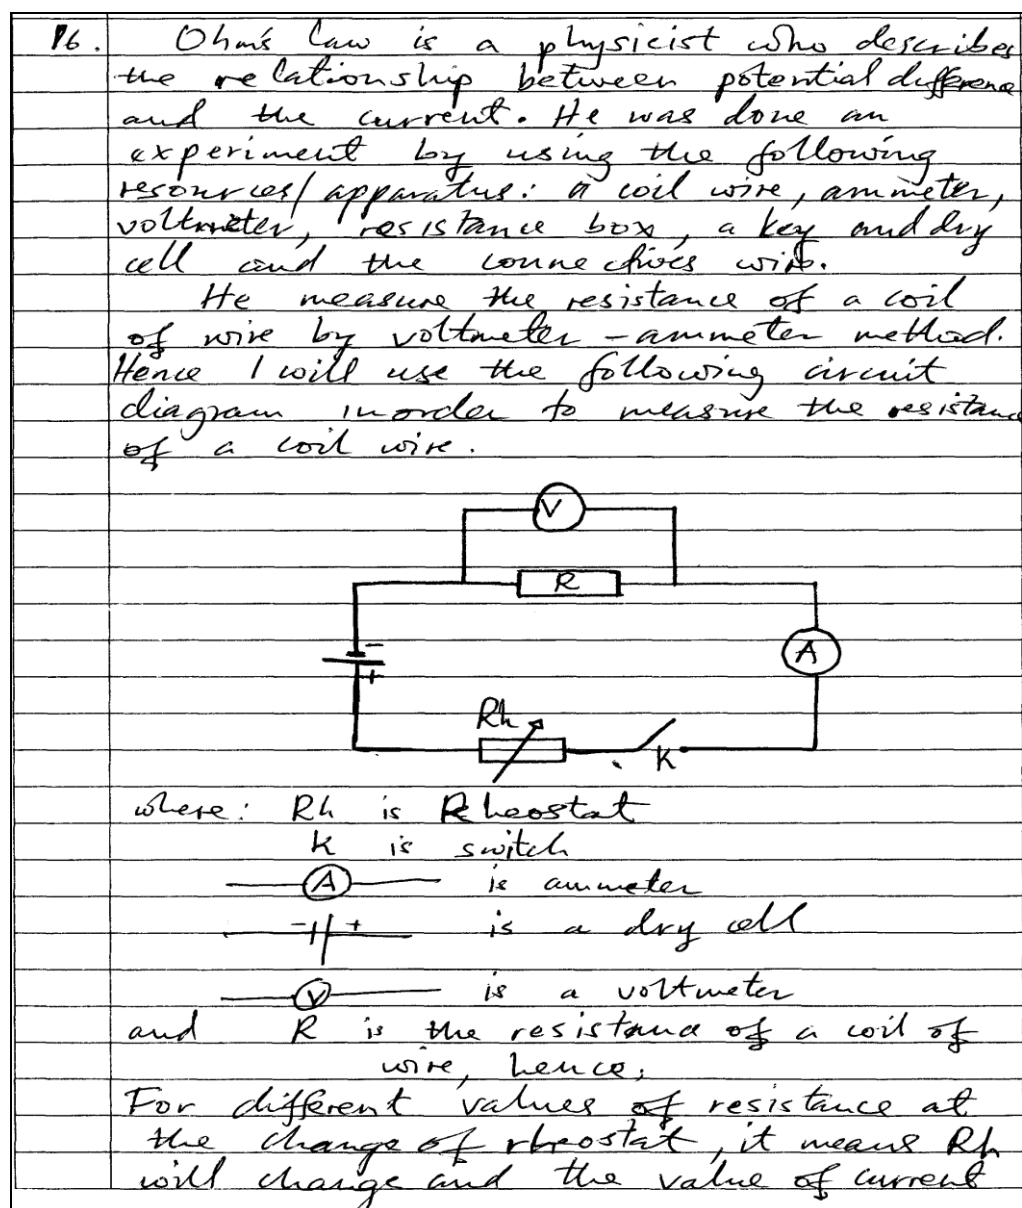 16. Ohm's law is a physicist who describes
the relationship between potential difference
and the current. He was done an
experiment by using the following
resources/apparatus: a coil wire, ammeter,
voltmeter, resistance box, a key and dry
cell and the connectives wire.
He measure the resistance of a coil
of wire by voltmeter - ammeter method.
Hence I will use the following circuit
diagram inorder to measure the resistance
of a coil wire.
V
R
-
+
A
Rh
K
where: Rh is Rheostat
K is switch
A is ammeter
- + is a dry cell
V is a voltmeter
and R is the resistance of a coil of
wire, hence;
For different values of resistance at
the change of rheostat, it means Rh
will change and the value of current